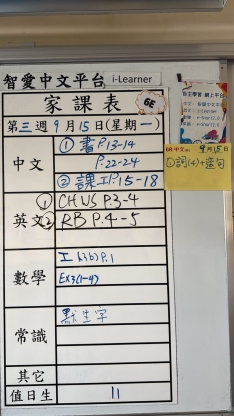 智愛中文平台 i-Learner
家課表 6E
第三週9月15日(星期一)
中文 ①書P.13-14
P.22-24
②課工P.15-18
英文 ①CH US P.3-4
②RB P.4-5
數學 工b3b)P.1
EX3(1-4)
常識 默生字
其它
值日生 11
自主學習 網上平台
6A中文 9月15日
①詞(4)+造句